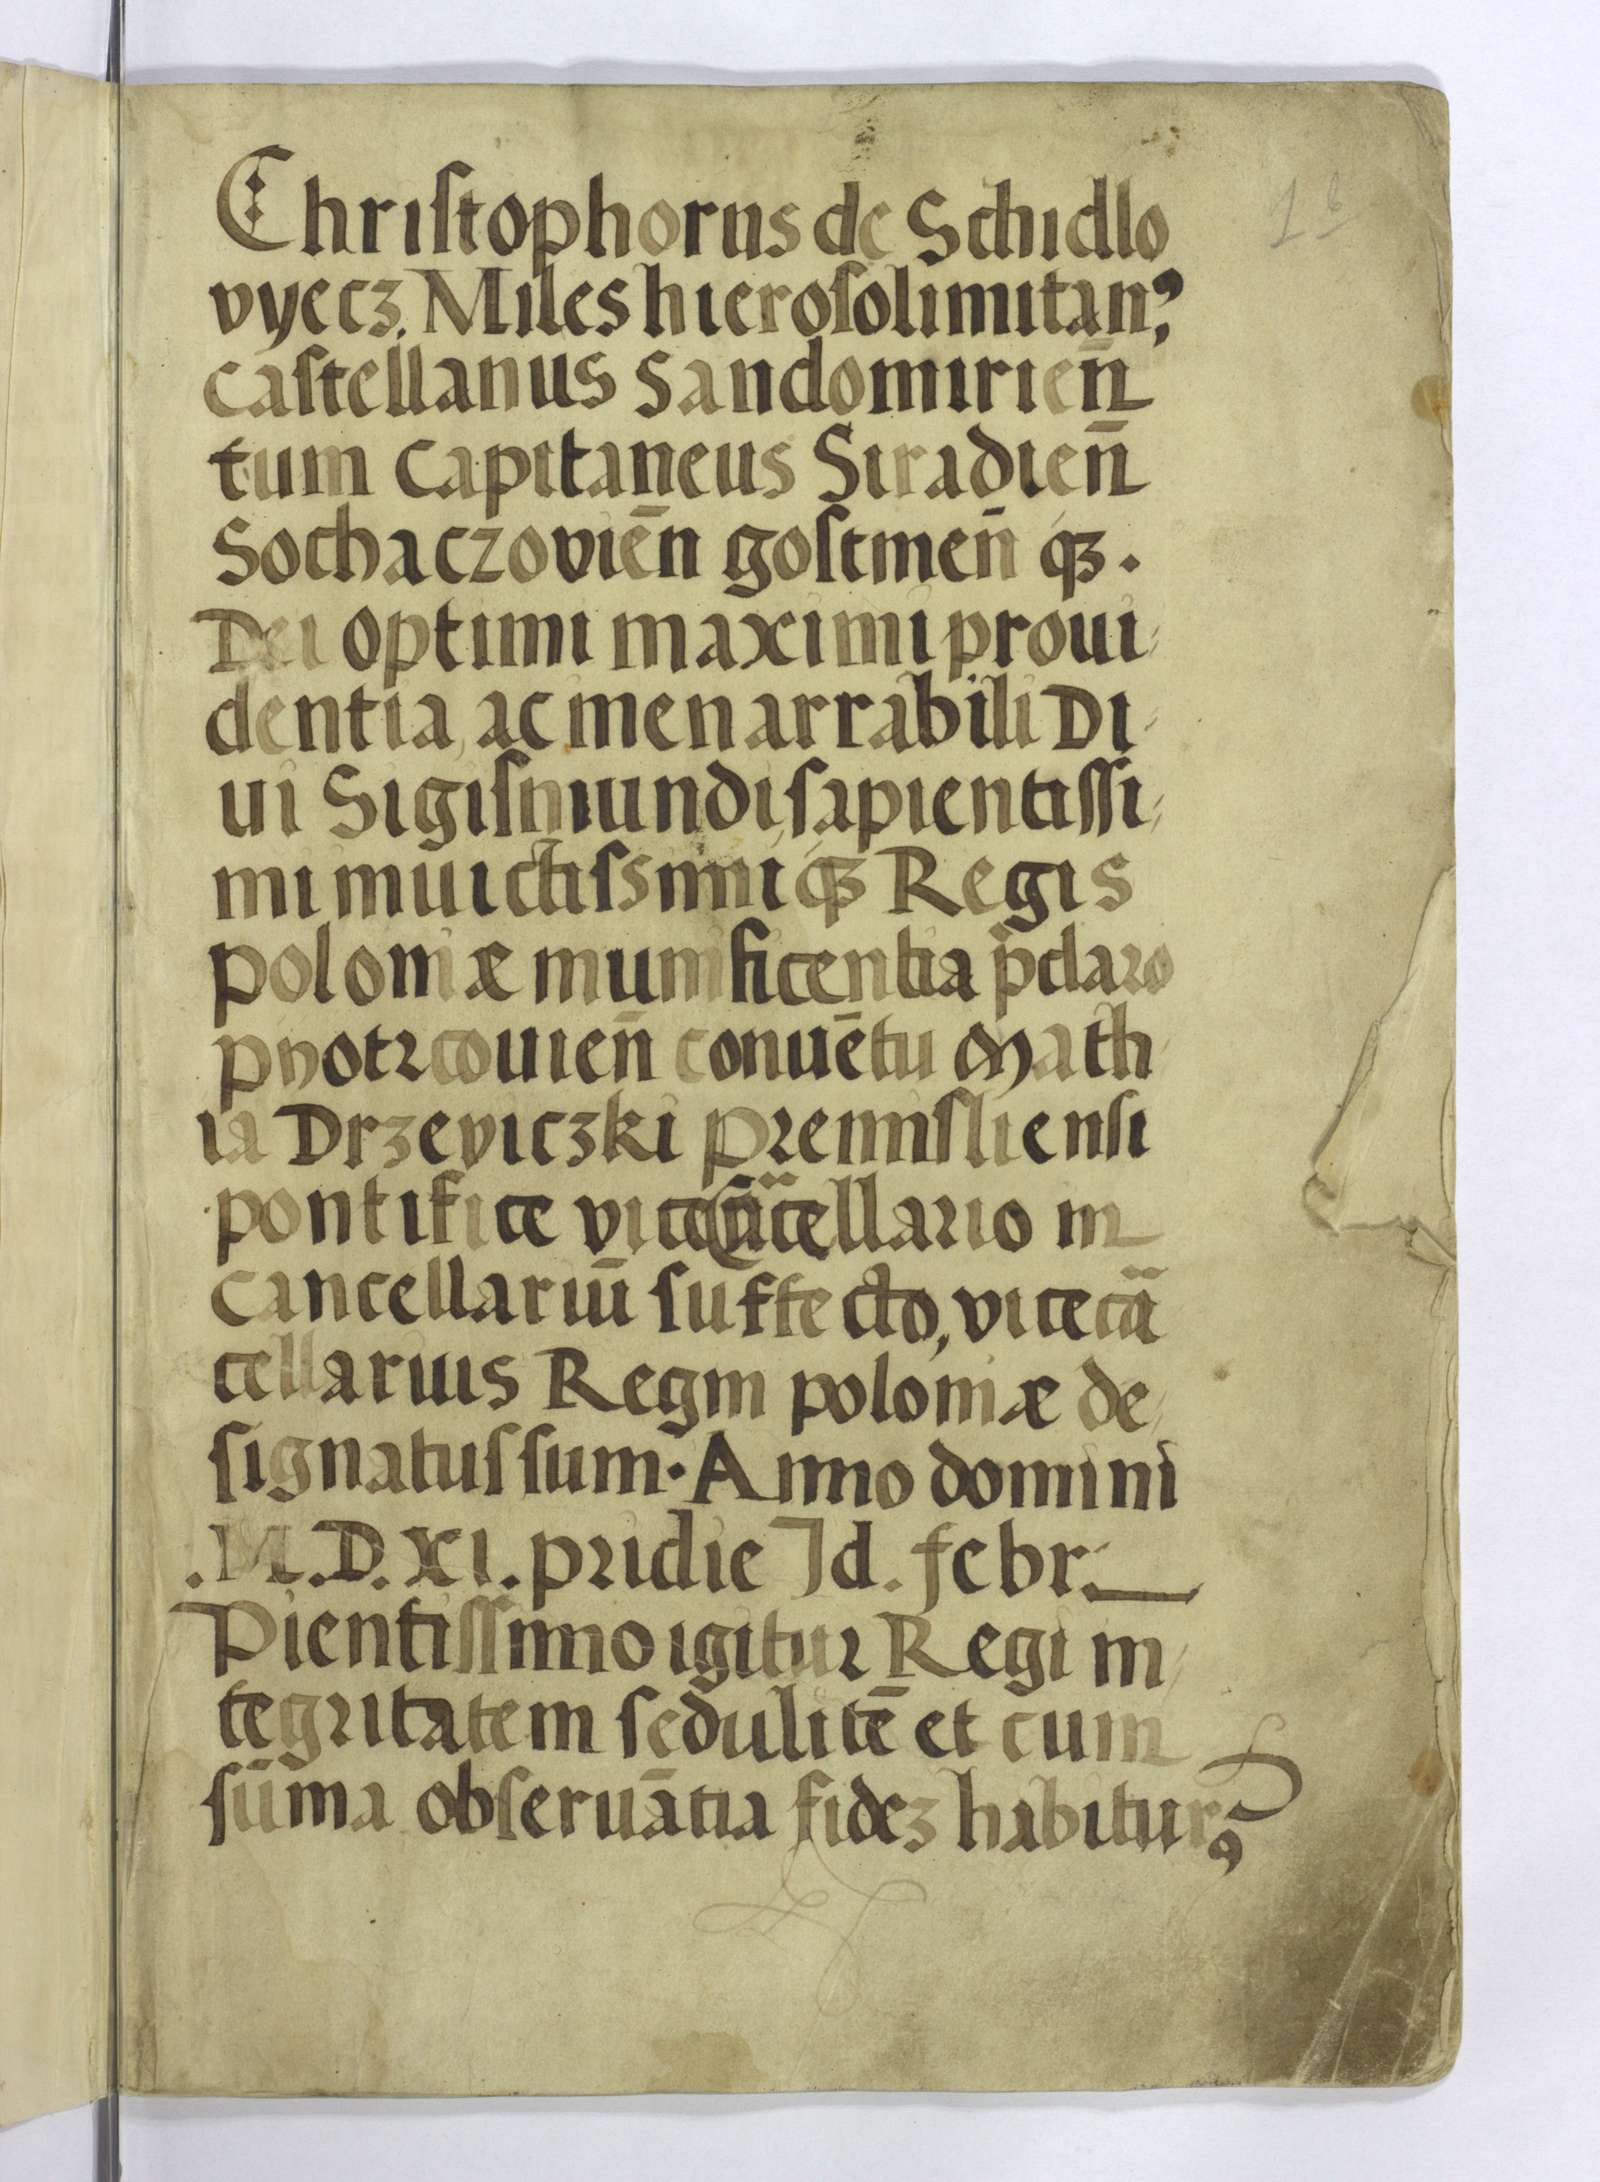 Christophorus de Schidlo
vyecz. Miles hierosolimitan9
castellanus Sandomirien̄
tum capitaneus Siradien̄
Sochaczoviēn gostmen̄ qꝫ.
Dei optimi maximi proui-
dentia, ac inenarrabili Di-
ui Sigismundi, sapientissi-
mi inuictissimi qꝫ Regis
poloniæ munificentia p̄claro
pyotrcouien̄ conuētu Math-
ia Drzeviczki premisliensi
pontifice vicecā̈cellario in
cancellariū suffecto, vicecā̈
cellarius Regni poloniæ de-
signatus sum. Anno domini
.M.D.XI. pridie Id. febr.
Pientissimo igitur Regi in-
tegritatem sedulitē et cum
sūma obseruātia fidez habitur9